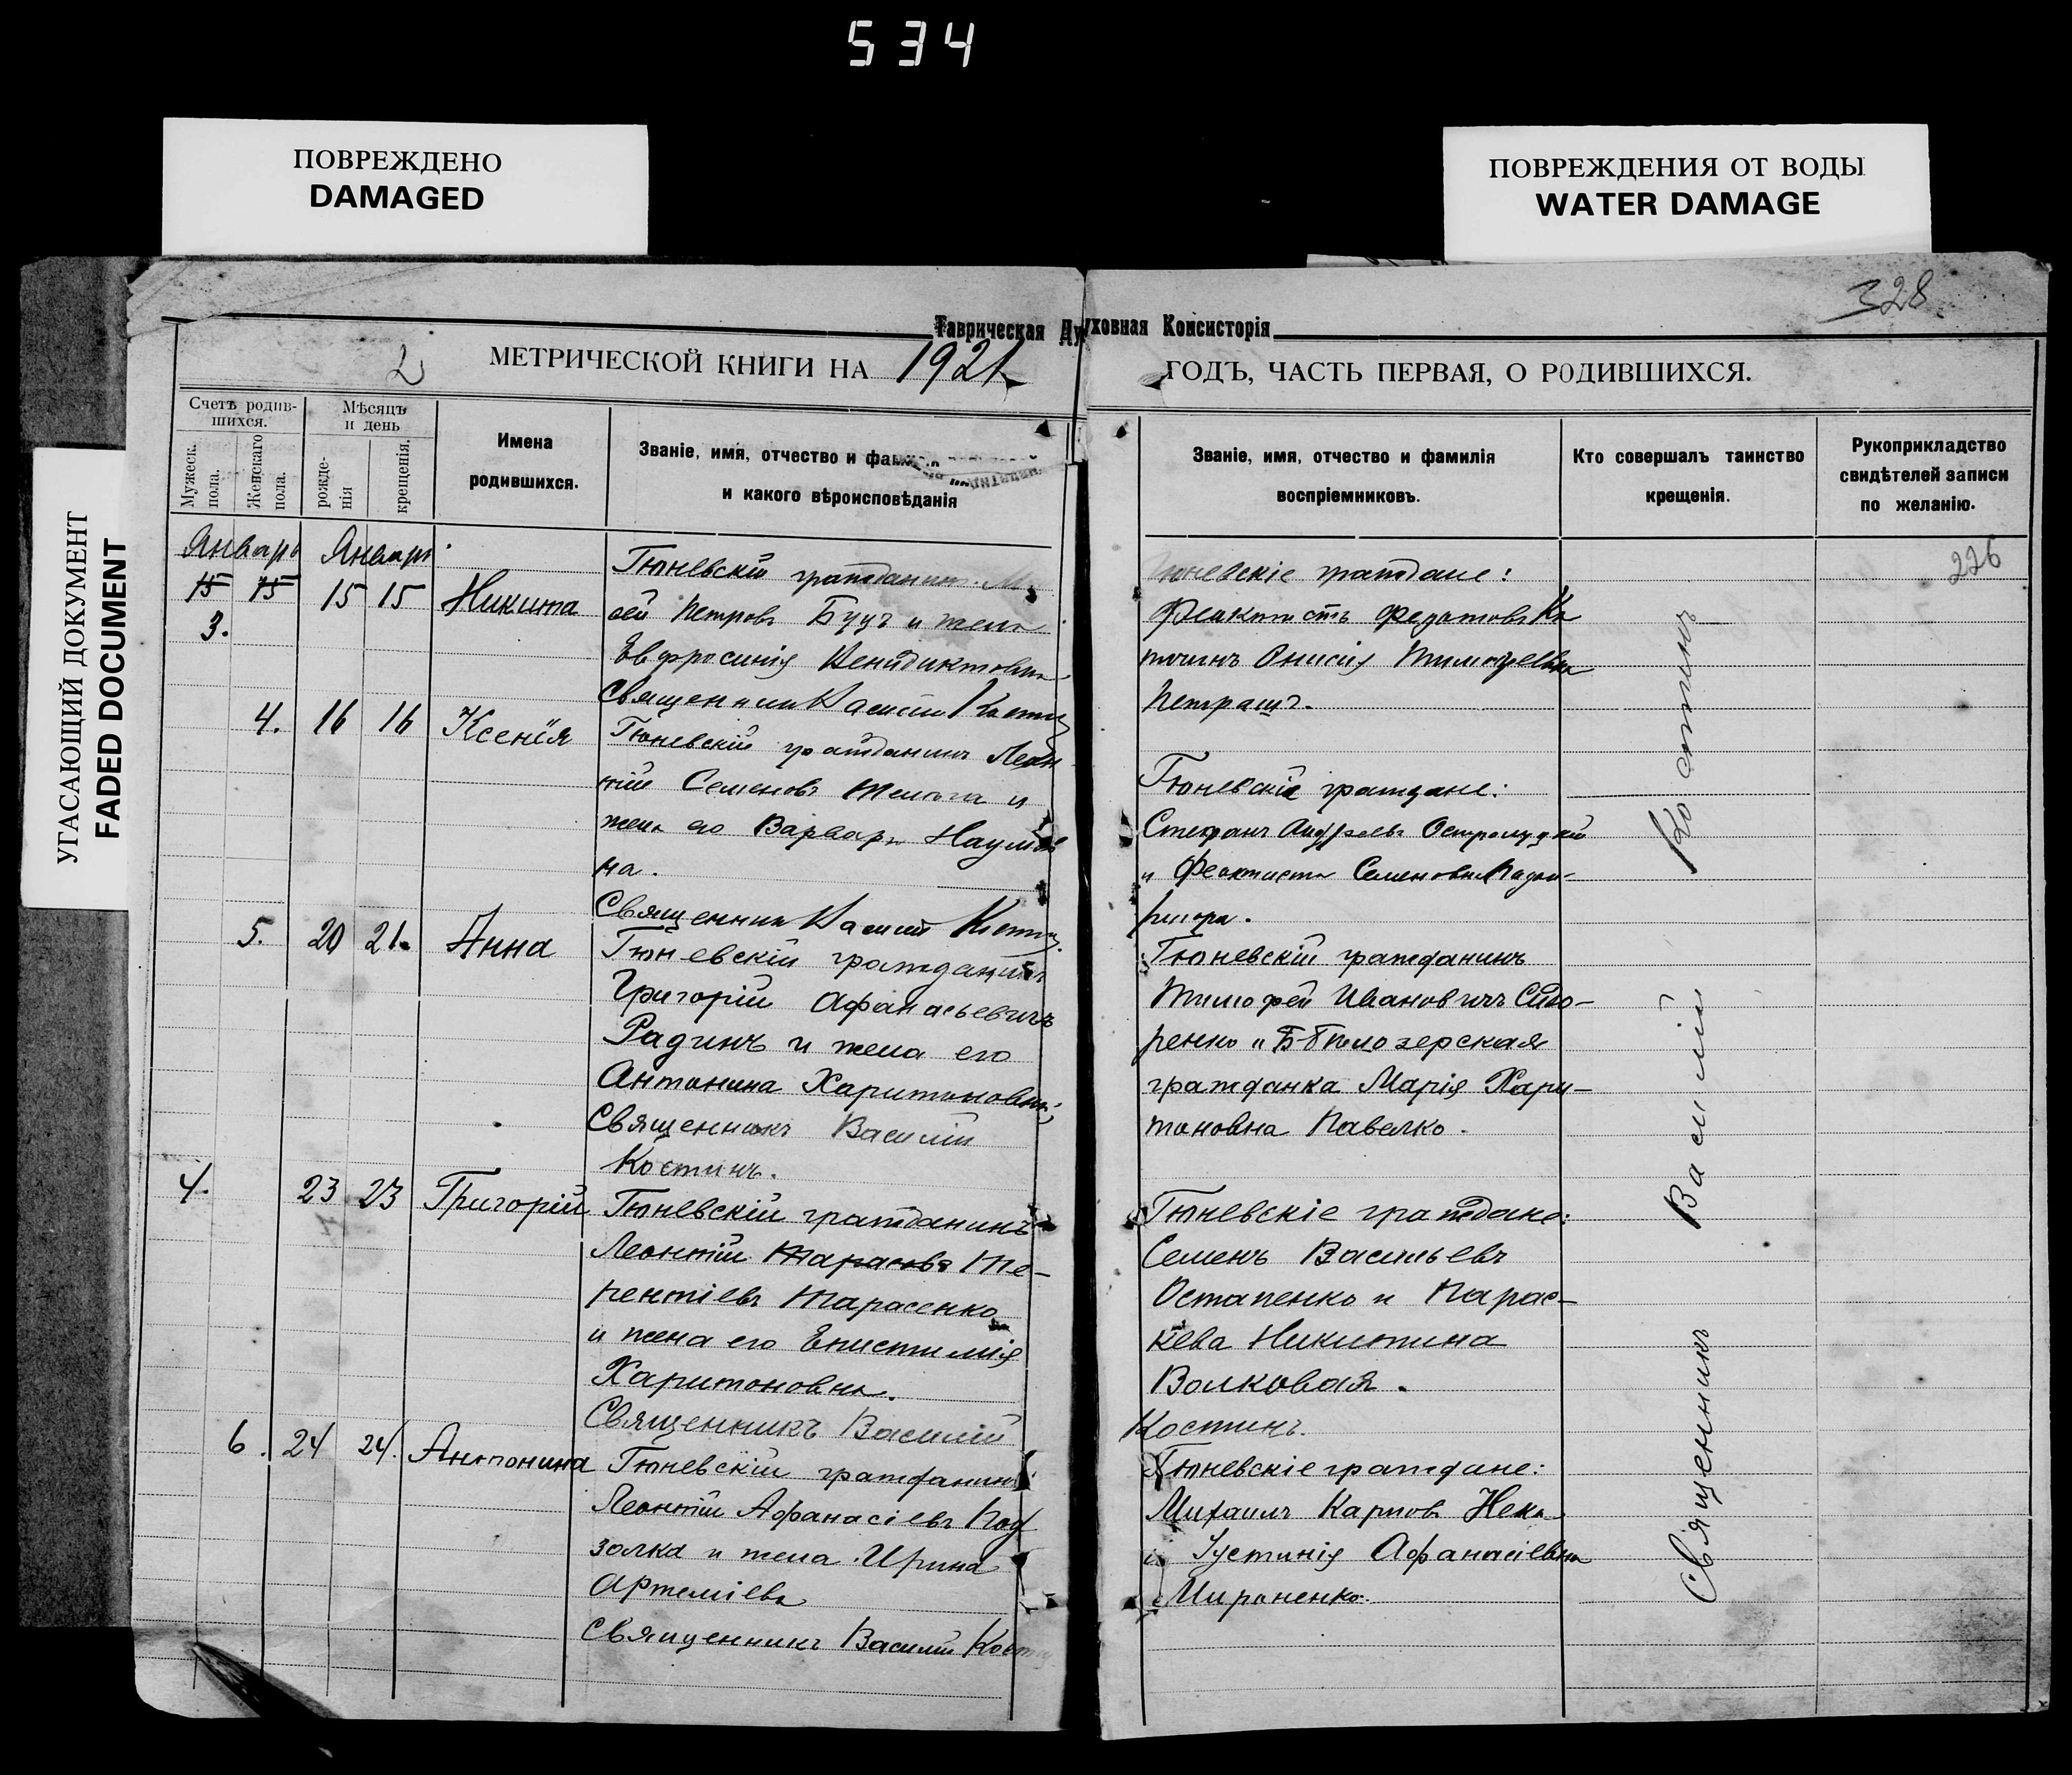 534
ПОВРЕЖДЕНО
DAMAGED
ПОВРЕЖДЕНИЯ ОТ ВОДЫ
WATER DAMAGE
УГАСАЮЩИЙ ДОКУМЕНТ
FADED DOCUMENT
328
Таврическая Духовная Консисторія
2 МЕТРИЧЕСКОЙ КНИГИ НА 1921
ГОДЪ, ЧАСТЬ ПЕРВАЯ, О РОДИВШИХСЯ.
Счетъ родив-
шихся.
Мужеск. пола.
Женскаго пола.
Мѣсяцъ
и день
рожде-
нія
крещенія.
Имена
родившихся.
Званіе, имя, отчество и
и какого вѣроисповѣданія
Званіе, имя, отчество и фамилія
воспріемниковъ.
Кто совершалъ таинство
крещенія.
Рукоприкладство
свидѣтелей записи
по желанію.
Январь Январь
15 15 15 15 Никита
3.
Гюневскій гражданинъ
сей Петровъ Буцъ и жена
Евфросинія Венидиктовна
Священник Василий Костин
4. 16 16 Ксенія
Гюневскій гражданинъ Леон
тій Семеновъ и
жена его Варвара Наумов
на.
Священник Василий Костин
5. 20 21. Анна
Гюневскій гражданинъ
Григорій Афанасьевичъ
Радинъ и жена его
Антонина Харитоновна
Священникъ Василій
Костинъ.
4. 23 23 Григорій
Гюневскій гражданинъ
Леонтій Тарасовъ Те-
рентіевъ Тарасенко
и жена его Епистимія
Харитоновна.
Священникъ Василій
Костинъ.
6. 24 24. Антонина
Гюневскій гражданинъ
Леонтій Афанасіевъ Под
золка и жена Ирина
Артеміева
Священникъ Василій Кост
226
Гюневскіе граждане:
Феоктистъ Федотовъ Ко
Онисія Тимофеевна
Петрашъ.
Гюневскіе граждане:
Стефанъ Андреевъ
и Феоктиста Семеновна
Гюневскій гражданинъ
Тимофей Ивановичъ Сидо-
ренко и Бѣлозерская
гражданка Марія Хари-
тоновна Павелко.
Гюневскіе граждане:
Семенъ Васильевъ
Остапенко и Парас-
кева Никитина
Волковая.
Гюневскіе граждане:
Михаилъ Карповъ
и Іустинія Афанасіевна
Мироненко.
Священникъ Василій Костинъ